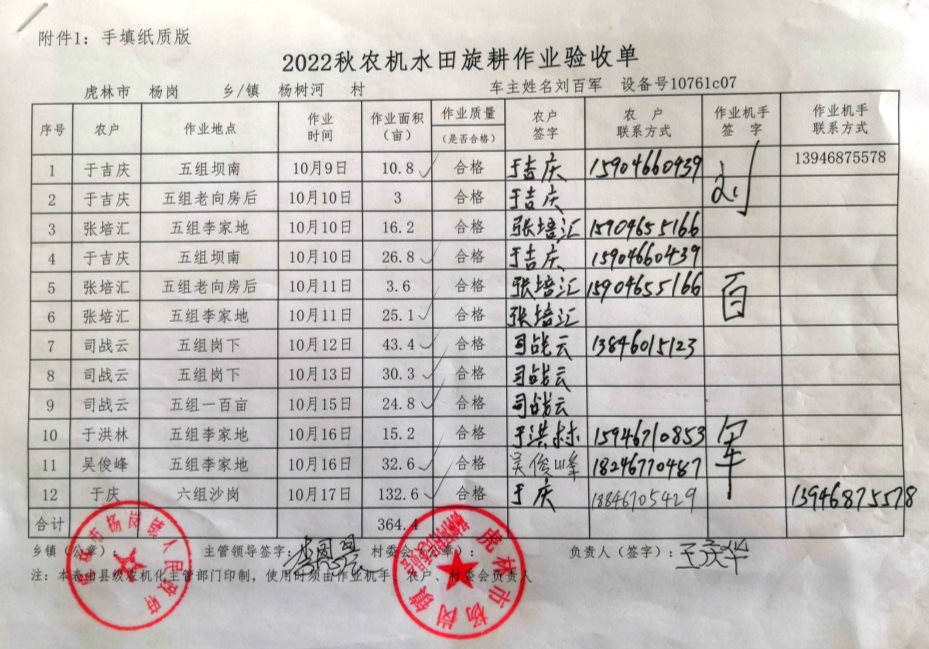 附件1：手填纸质版
2022秋农机水田旋耕作业验收单
虎林市 杨岗 乡/镇 杨树河 村 车主姓名刘百军 设备号10761c07
序号 农户 作业地点 作业时间 作业面积（亩） 作业质量（是否合格） 农户签字 农户联系方式 作业机手签字 作业机手联系方式
1 于吉庆 五组坝南 10月9日 10.8 合格 于吉庆 15904660439 刘 13946875578
2 于吉庆 五组老向房后 10月10日 3 合格 于吉庆
3 张培汇 五组李家地 10月10日 16.2 合格 张培汇 15904655166
4 于吉庆 五组坝南 10月10日 26.8 合格 于吉庆 15904660439
5 张培汇 五组老向房后 10月11日 3.6 合格 张培汇 15904655166 百
6 张培汇 五组李家地 10月11日 25.1 合格 张培汇
7 司战云 五组岗下 10月12日 43.4 合格 司战云 13846015123
8 司战云 五组岗下 10月13日 30.3 合格 司战云
9 司战云 五组一百亩 10月15日 24.8 合格 司战云
10 于洪林 五组李家地 10月16日 15.2 合格 于洪林 15946710853 军
11 吴俊峰 五组李家地 10月16日 32.6 合格 吴俊峰 18246770487
12 于庆 六组沙岗 10月17日 132.6 合格 于庆 18846705429 13946875578
合计 364.4
乡镇（公章）： 主管领导签字： 村委会（公章）： 负责人（签字）：王庆华
注：本表由县级农机化主管部门印制，使用时须由作业机手、农户、村委会负责人
市杨岗镇人民政府
虎林市杨岗镇